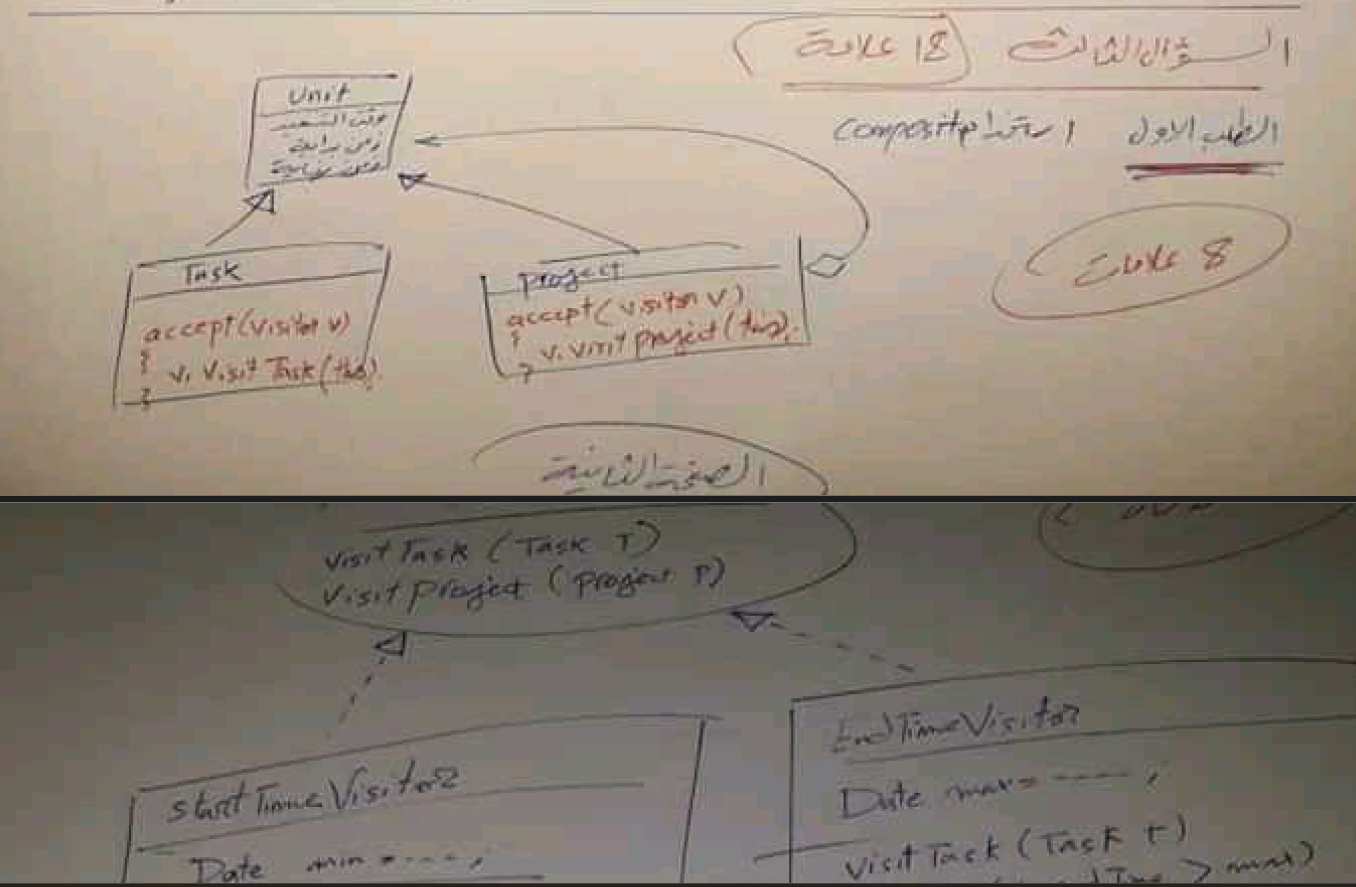 السؤال الثالث (18 علامة)
الطلب الاول استخدام composite
8 علامات
Unit
وقت التنفيذ
زمن بداية
زمن نهاية
Task
accept(visitor v)
{
v. visit Task(this).
}
project
accept(visitor v)
{
v. visit project(this);
}
الصفحة الثانية
visit Task (Task T)
visit project (project P)
StartTimeVisitor
Date min = ---- ;
EndTimeVisitor
Date max = ---- ;
visit Task (Task t)
> max)